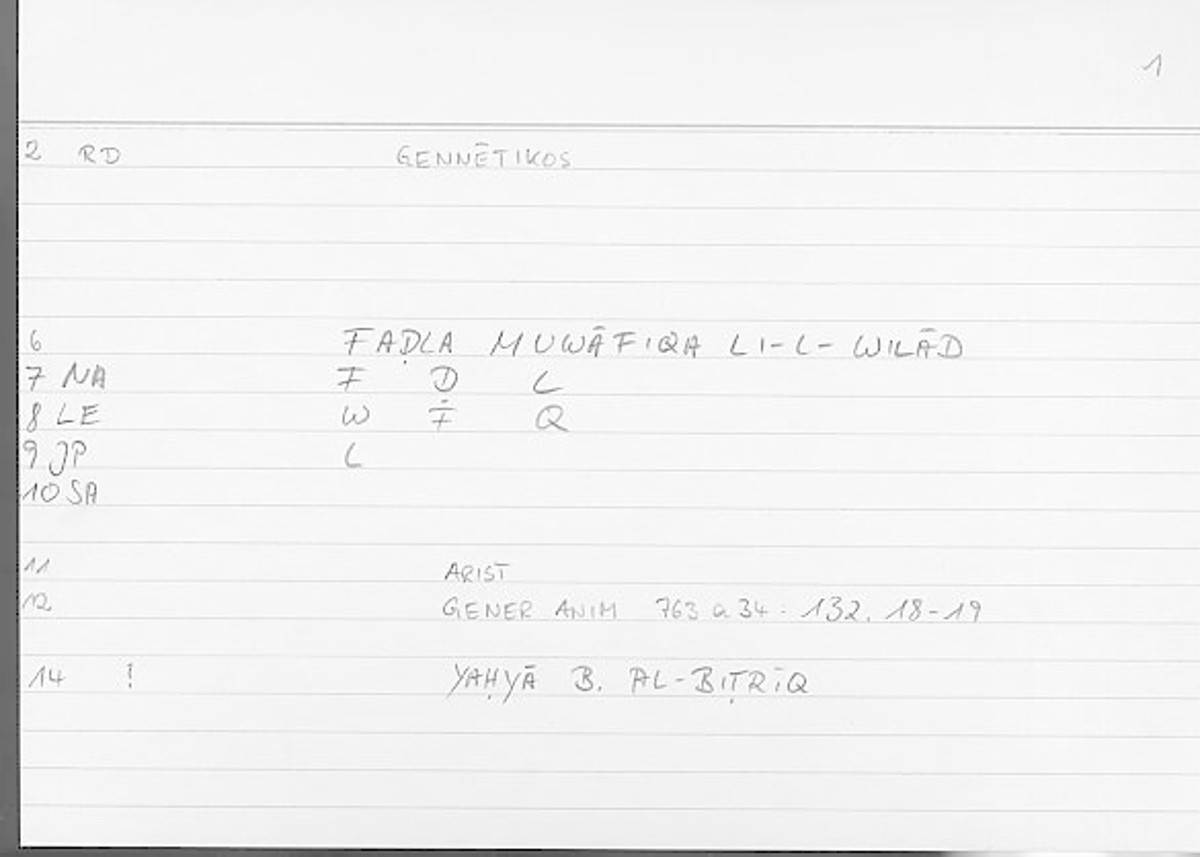 1
2 RD GENNĒTIKOS
6 FAḌLA MUWĀFIQA LI-L-WILĀD
7 NA F Ḍ L
8 LE W F Q
9 JP L
10 SA
11 ARIST
12 GENER ANIM 763 a 34 : 132. 18-19
14 ! YAḤYĀ B. AL-BIṬRĪQ